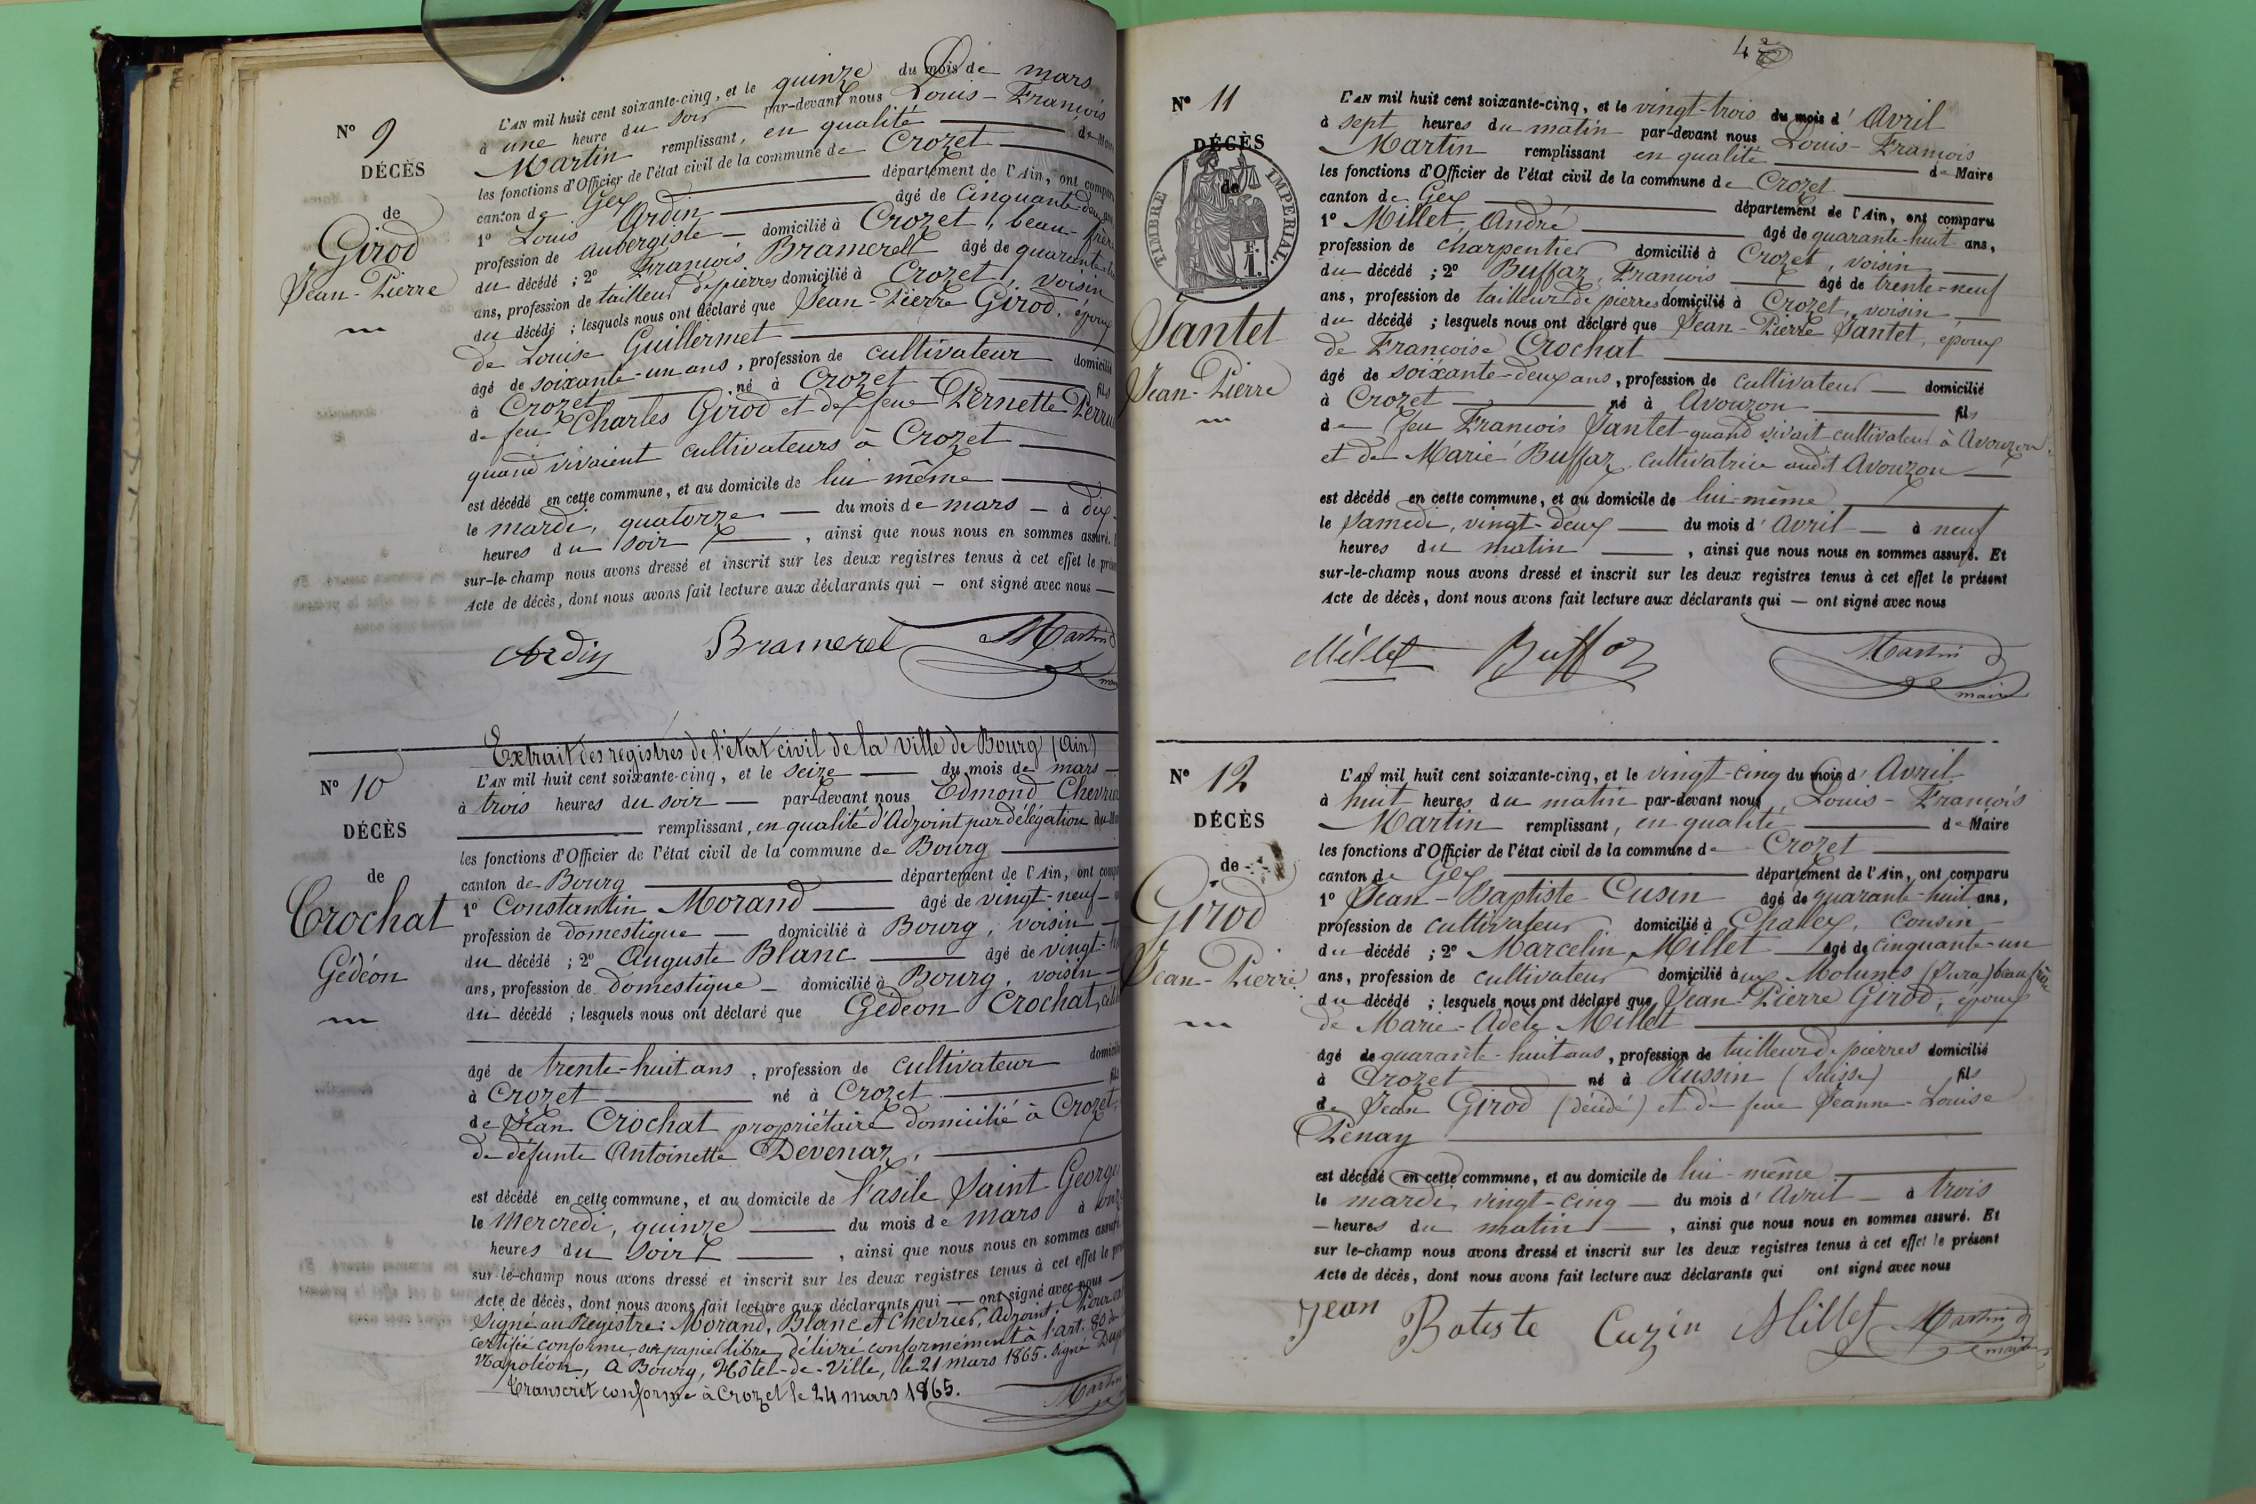 N° 9
DÉCÈS
de
Girod
Jean-Pierre
L'AN mil huit cent soixante-cinq, et le quinze du mois de mars
à une heure du soir par-devant nous Louis-François
Martin remplissant, en qualité de Maire
les fonctions d'Officier de l'état civil de la commune de Crozet
canton de Gex département de l'Ain, ont comparu
1° Louis Ardin âgé de cinquante-deux ans
profession de aubergiste domicilié à Crozet, beau-frère
du décédé ; 2° François Bramerel âgé de quarante
ans, profession de tailleur de pierres domicilié à Crozet, voisin
du décédé ; lesquels nous ont déclaré que Jean-Pierre Girod, époux
de Louise Guillermet
âgé de soixante-un ans, profession de cultivateur domicilié
à Crozet né à Crozet fils
de feu Charles Girod et de feue Pernette
quand vivaient cultivateurs à Crozet
est décédé en cette commune, et au domicile de lui-même
le mardi, quatorze du mois de mars à dix
heures du soir, ainsi que nous nous en sommes assuré.
sur-le-champ nous avons dressé et inscrit sur les deux registres tenus à cet effet le présent
Acte de décès, dont nous avons fait lecture aux déclarants qui — ont signé avec nous —
Ardin Bramerel Martin
maire
Extrait des registres de l'état civil de la ville de Bourg (Ain)
N° 10
DÉCÈS
de
Crochat
Gédéon
L'AN mil huit cent soixante-cinq, et le seize du mois de mars
à trois heures du soir par-devant nous Edmond Chevrier
remplissant, en qualité d'Adjoint par délégation du
les fonctions d'Officier de l'état civil de la commune de Bourg
canton de Bourg département de l'Ain, ont comparu
1° Constantin Morand âgé de vingt-neuf
profession de domestique domicilié à Bourg, voisin
du décédé ; 2° Auguste Blanc âgé de vingt
ans, profession de domestique domicilié à Bourg, voisin
du décédé ; lesquels nous ont déclaré que Gédéon Crochat,
âgé de trente-huit ans, profession de cultivateur domicilié
à Crozet né à Crozet fils
de Jean Crochat propriétaire domicilié à Crozet,
de défunte Antoinette Devenaz,
est décédé en cette commune, et au domicile de l'asile Saint George
le mercredi, quinze du mois de mars à onze
heures du soir, ainsi que nous nous en sommes assuré
sur-le-champ nous avons dressé et inscrit sur les deux registres tenus à cet effet le présent
Acte de décès, dont nous avons fait lecture aux déclarants qui — ont signé avec nous —
Signé au Registre: Morand, Blanc et Chevrier, Adjoint. Pour
certifié conforme, sur papier libre, délivré conformément à l'art. 80 du
Napoléon, à Bourg, Hôtel-de-Ville, le 21 mars 1865. Signé
Transcrit conforme à Crozet le 24 mars 1865.
Martin
N° 11
DÉCÈS
de
TIMBRE IMPERIAL
F.
1.
Jantet
Jean-Pierre
L'AN mil huit cent soixante-cinq, et le vingt-trois du mois d'Avril
à sept heures du matin par-devant nous Louis-François
Martin remplissant en qualité de Maire
les fonctions d'Officier de l'état civil de la commune de Crozet
canton de Gex département de l'Ain, ont comparu
1° Millet, André âgé de quarante-huit ans,
profession de charpentier domicilié à Crozet, voisin
du décédé ; 2° Buffaz, François âgé de trente-neuf
ans, profession de tailleur de pierres domicilié à Crozet, voisin
du décédé ; lesquels nous ont déclaré que Jean-Pierre Jantet, époux
de Françoise Crochat
âgé de soixante-deux ans, profession de cultivateur domicilié
à Crozet né à Avouzon fils
de feu François Jantet quand vivait cultivateur à Avouzon,
et de Marie Buffaz, cultivatrice audit Avouzon
est décédé en cette commune, et au domicile de lui-même
le samedi, vingt-deux du mois d'Avril à neuf
heures du matin, ainsi que nous nous en sommes assuré. Et
sur-le-champ nous avons dressé et inscrit sur les deux registres tenus à cet effet le présent
Acte de décès, dont nous avons fait lecture aux déclarants qui — ont signé avec nous
Millet Buffaz Martin
maire
N° 12
DÉCÈS
de
Girod
Jean-Pierre
L'AN mil huit cent soixante-cinq, et le vingt-cinq du mois d'Avril
à huit heures du matin par-devant nous, Louis-François
Martin remplissant, en qualité de Maire
les fonctions d'Officier de l'état civil de la commune de Crozet
canton de Gex département de l'Ain, ont comparu
1° Jean-Baptiste Cusin âgé de quarante-huit ans,
profession de cultivateur domicilié à Challex, cousin
du décédé ; 2° Marcelin Millet âgé de cinquante-un
ans, profession de cultivateur domicilié aux Molunes (Jura) beau frère
du décédé ; lesquels nous ont déclaré que Jean-Pierre Girod, époux
de Marie-Adèle Millet
âgé de quarante-huit ans, profession de tailleur de pierres domicilié
à Crozet né à Russin (Suisse) fils
de Jean Girod (décédé) et de feue Jeanne-Louise
Penay
est décédé en cette commune, et au domicile de lui-même
le mardi, vingt-cinq du mois d'Avril à trois
heures du matin, ainsi que nous nous en sommes assuré. Et
sur le-champ nous avons dressé et inscrit sur les deux registres tenus à cet effet le présent
Acte de décès, dont nous avons fait lecture aux déclarants qui ont signé avec nous
Jean Batiste Cuzin Millet Martin
maire